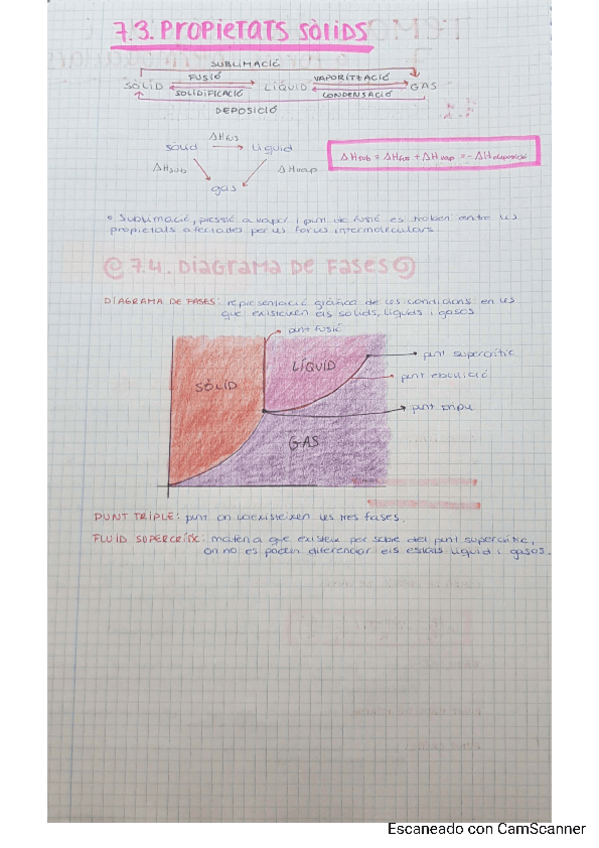 7.3. PROPIETATS SÒLIDS
SUBLIMACIÓ
FUSIÓ
VAPORITZACIÓ
SÒLID
LÍQUID
GAS
SOLIDIFICACIÓ
CONDENSACIÓ
DEPOSICIÓ
ΔHfus
sòlid
líquid
ΔHsub
ΔHvap
gas
ΔHsub = ΔHfus + ΔHvap = -ΔHdeposició
Sublimació, pressió a vapor i punt de fusió es troben entre les
propietats afectades per les forces intermoleculars.
7.4. DIAGRAMA DE FASES
DIAGRAMA DE FASES: representació gràfica de les condicions en les
que existeixen els sòlids, líquids i gasos
punt fusió
LÍQUID
punt supercrític
SÒLID
punt ebullició
punt triple
GAS
PUNT TRIPLE: punt on coexisteixen les tres fases.
FLUID SUPERCRÍTIC: matèria que existeix per sobre del punt supercrític,
on no es poden diferenciar els estats líquid i gasos.
Escaneado con CamScanner